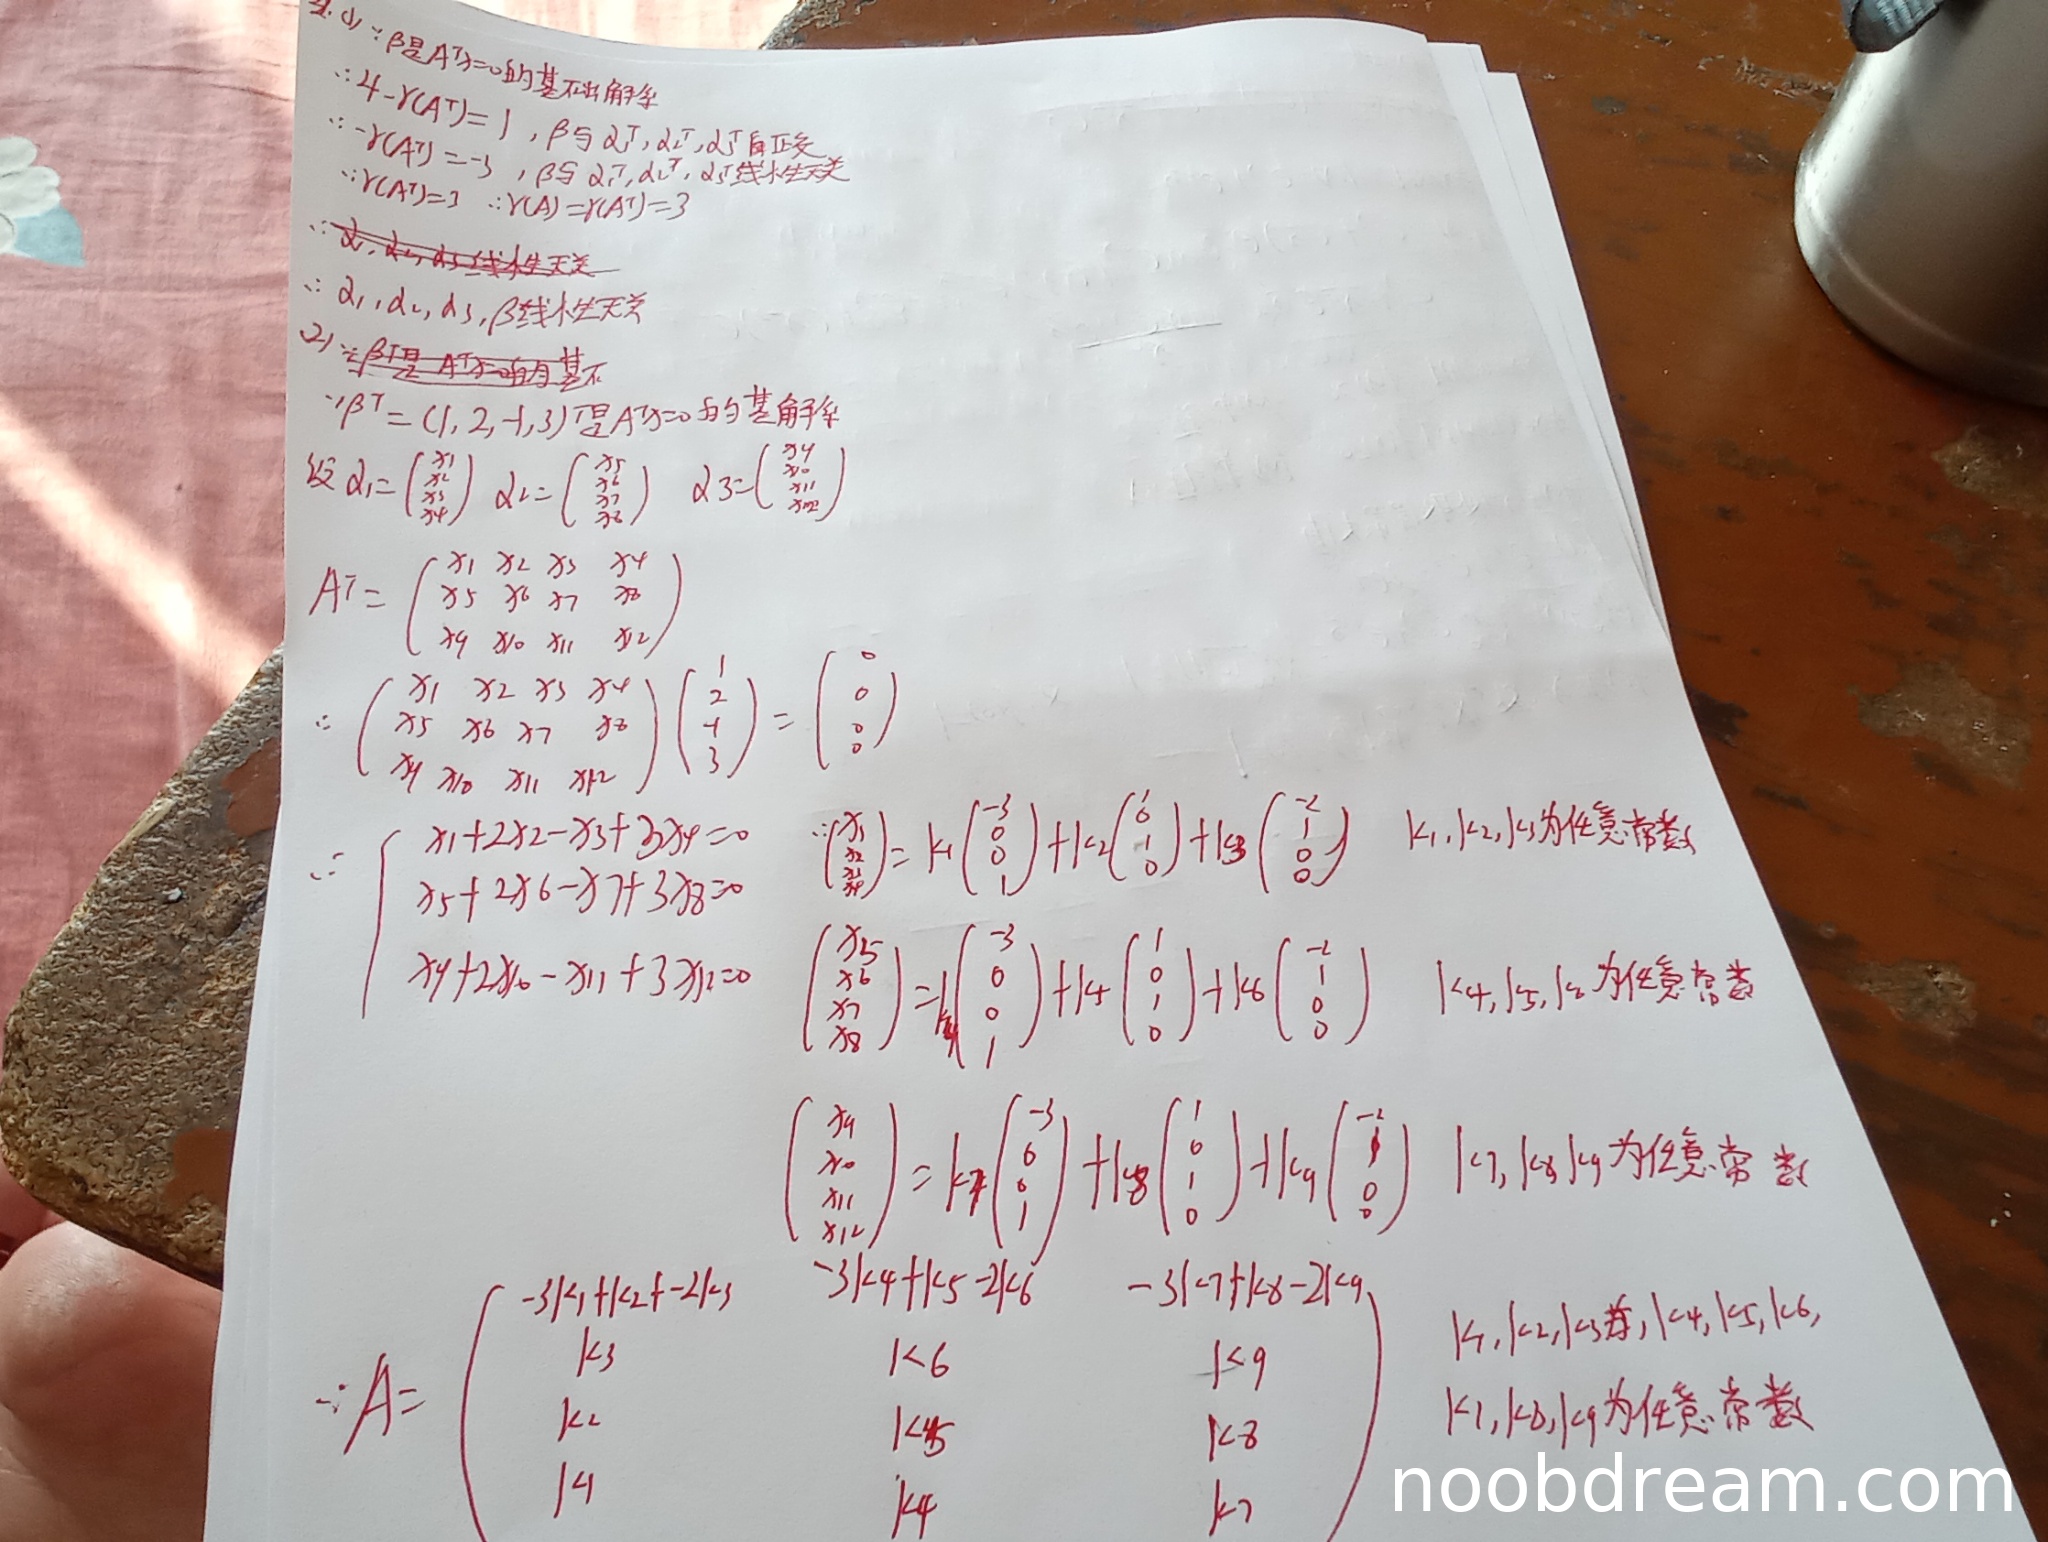 (1) ∵β是AᵀX=0的基础解系
∴4-r(Aᵀ)=1,β与α₁ᵀ,α₂ᵀ,α₃ᵀ正交
∴-r(Aᵀ)=-3,β与α₁ᵀ,α₂ᵀ,α₃ᵀ线性无关
∴r(Aᵀ)=3 ∴r(A)=r(Aᵀ)=3
∴α₁,α₂,α₃线性无关
∴α₁,α₂,α₃,β线性无关
2) ∵βᵀ是AᵀX=0的基
∵βᵀ=(1,2,-1,3)ᵀ是AᵀX=0的基解系
设α₁=(x1 x2 x3 x4) α₂=(x5 x6 x7 x8) α3=(x9 x10 x11 x12)
Aᵀ=(x1 x2 x3 x4
x5 x6 x7 x8
x9 x10 x11 x12)
∴(x1 x2 x3 x4
x5 x6 x7 x8
x9 x10 x11 x12)(1 2 -1 3)=(0 0 0 0)
∴{x1+2x2-x3+3x4=0
x5+2x6-x7+3x8=0
x9+2x10-x11+3x12=0
∴(x1 x2 x3 x4)=k1(-3 0 0 1)+k2(1 0 1 0)+k3(-2 1 0 0) k1,k2,k3为任意常数
(x5 x6 x7 x8)=k4(-3 0 0 1)+k5(1 0 1 0)+k6(-2 1 0 0) k4,k5,k6为任意常数
(x9 x10 x11 x12)=k7(-3 0 0 1)+k8(1 0 1 0)+k9(-2 1 0 0) k7,k8 k9为任意常数
∴A=(-3k1+k2+-2k3 -3k4+k5-2k6 -3k7+k8-2k9
k3 k6 k9
k2 k5 k8
k1 k4 k7
k1,k2,k3,k4,k5,k6,
k7,k8,k9为任意常数
noobdream.com